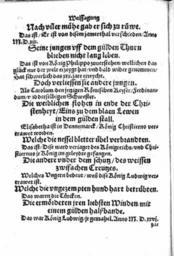 Weissagung
Nach viler mühe gab er sich zu rüwe.
Das ist. Er ist von disem jamerthal verscheiden Anno
M D.
Seine jungen vff dem gülden Thurn
blieben nicht lang leben.
Das ist von König Philippo zuuerstehen welchem das
glück nur
Doch verliessen sie andere jungen.
Als Carolum den jetzigen Römischen Keyser Ferdinan-
dum
Die weiblichen flohen in ende der Chri-
stenheyt/ Eins zu dem blaen Lewen
in den gülden stall.
Elisabetha ist in Dennemarck König Christiern ver-
trawet worden.
Welche die nessel bletter übel verbrandten.
Das ist. Diß ward verjaget des Königreichs und Chri-
stiern von
Die andere vnder dem schutz/ des weissen
zwifachen Creutzes.
Welches Ungern bedeut/ weil diese König Ludwig ver-
trawet ist.
Welche die vngezempten hund hart betrübten.
Das waren die Türcken.
Die ermördeten jren liebsten Winden mit
einem gülden halßbande.
Das war König Ludwig jr gemahel Anno M. D. xxvj.